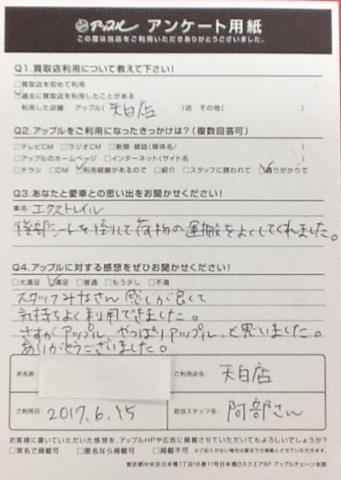 アップル アンケート用紙
この度は当店をご利用いただきありがとうございました。
Q1.買取店利用について教えて下さい!
□買取店を初めて利用
☑過去に買取店を利用したことがある
利用した店舗: アップル( 天白店 )店 その他( )
Q2.アップルをご利用になったきっかけは?(複数回答可)
□テレビCM □ラジオCM □新聞・雑誌(媒体名/ )
□アップルのホームページ □インターネット(サイト名 )
□チラシ □DM ☑利用経験があるので □紹介 □スタッフに誘われて ☑通りがかりで
Q3.あなたと愛車との思い出をお聞かせください!
車名: エクストレイル
後部シートを倒して荷物の運搬をよくしてくれました。
Q4.アップルに対する感想をぜひお聞かせください!
□大満足 ☑満足 □普通 □もう少し □不満
スタッフみなさん感じが良くて
気持ちよく利用できました。
さすがアップル、やっぱりアップル、と思いました。
ありがとうございました。
お名前
ご利用店名 天白店
ご利用日 2017.6.15
担当スタッフ名 阿部さん
お客様に書いていただいた感想を、アップルHPや広告に掲載させていただいてもよろしいでしょうか?
□実名で掲載可 □匿名なら掲載可 □掲載不可
※ご記入がない場合は匿名での掲載とさせていただきます。
東京都中央区日本橋1丁目16番11号日本橋Dスクエア5F アップルチェーン本部